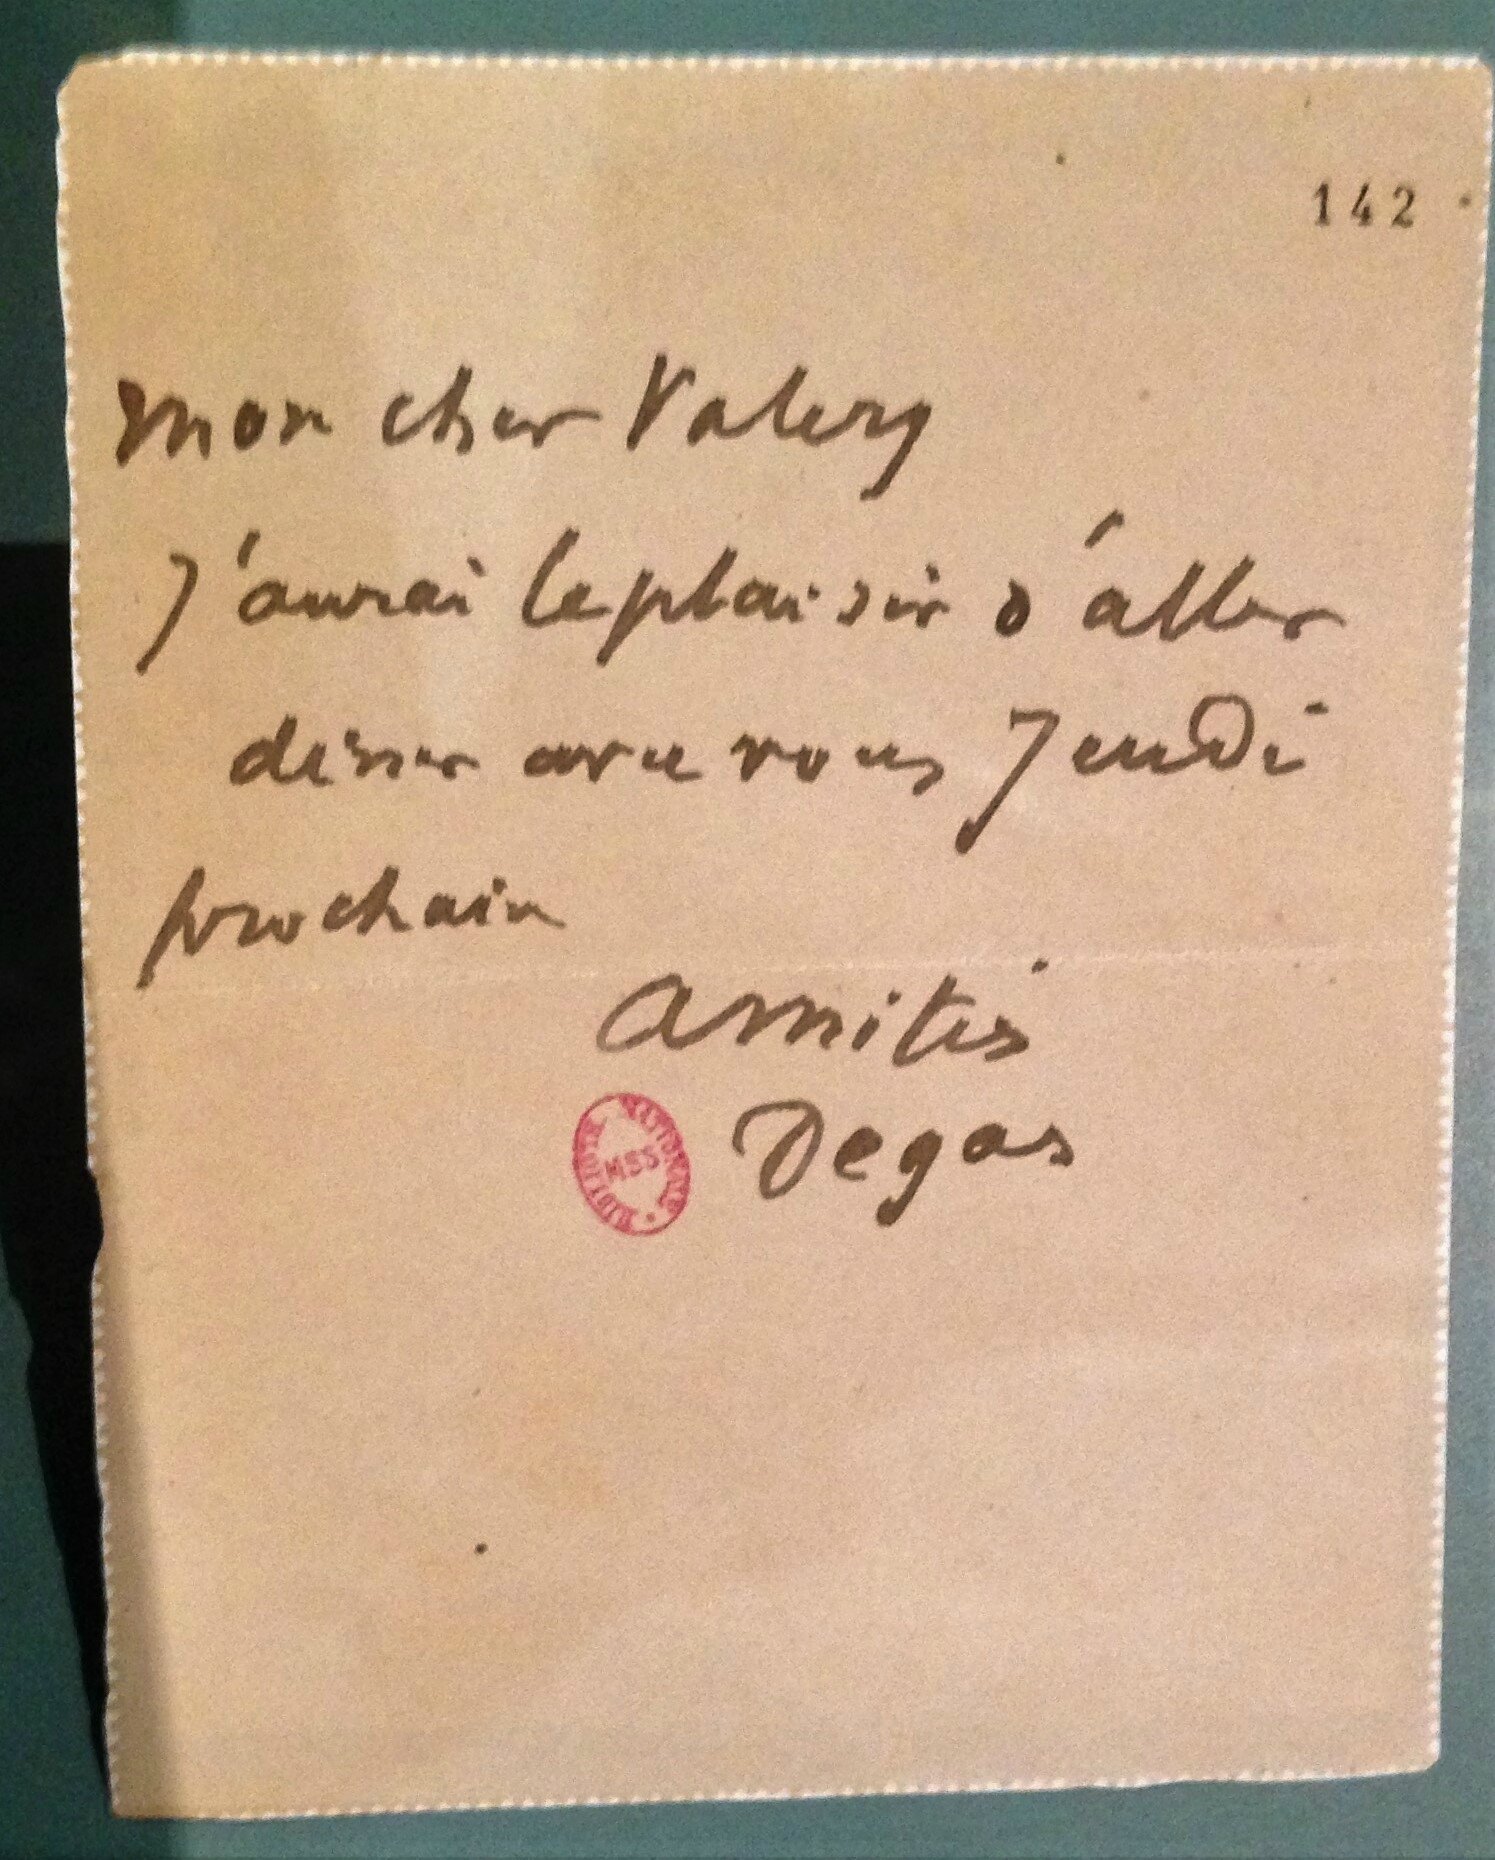 142
mon cher Valery
J'aurai le plaisir d'aller
diner avec vous Jeudi
prochain
amitiés
Degas
BIBLIOTH NATIONALE MSS